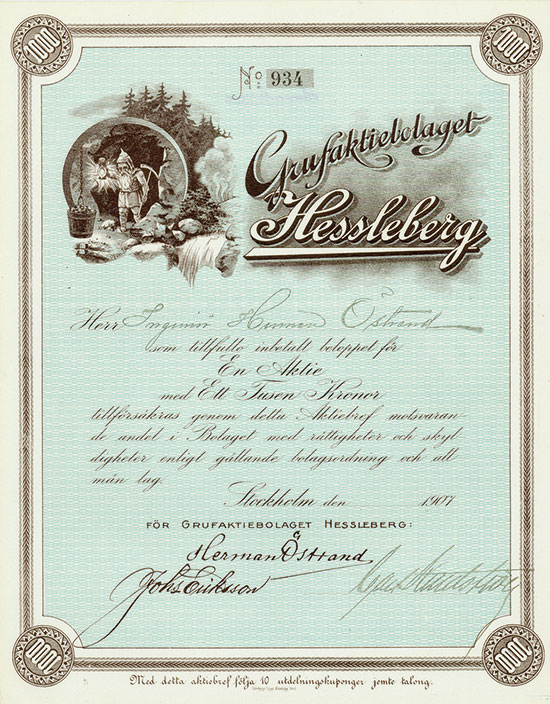 1000 1000
No: 934
Grufaktiebolaget
Hessleberg
Herr Ingeniör Herman Östrand
som tillfullo inbetalt beloppet för
En Aktie
med Ett Tusen Kronor
tillförsäkras genom detta Aktiebref motsvaran-
de andel i Bolaget med rättigheter och skyl-
digheter enligt gällande bolagsordning och all-
män lag.
Stockholm den 1907
FÖR GRUFAKTIEBOLAGET HESSLEBERG:
Herman Östrand
Johs. Eriksson
1000 1000
Med detta aktiebref följa 10 utdelningskuponger jemte talong.